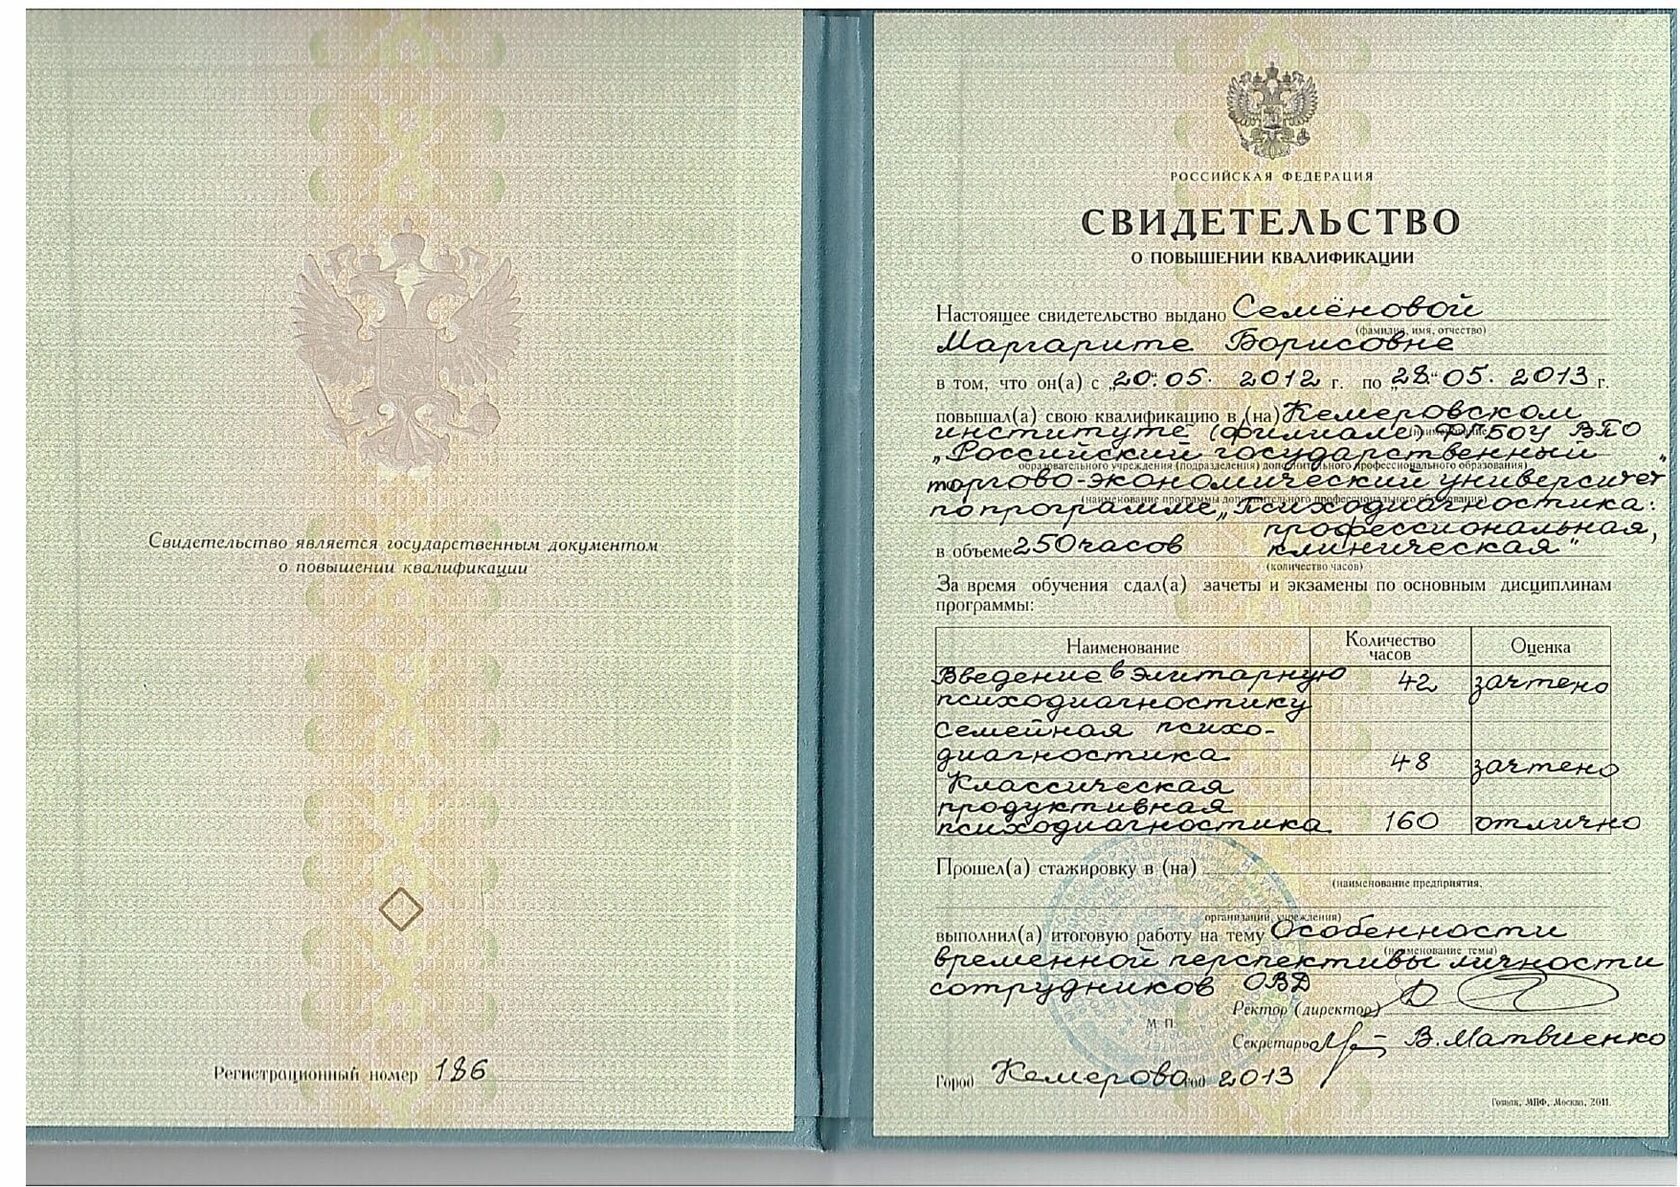 Свидетельство является государственным документом
о повышении квалификации
Регистрационный номер 186
РОССИЙСКАЯ ФЕДЕРАЦИЯ
СВИДЕТЕЛЬСТВО
О ПОВЫШЕНИИ КВАЛИФИКАЦИИ
Настоящее свидетельство выдано Семёновой
(фамилия, имя, отчество)
Маргарите Борисовне
в том, что он(а) с „20“ 05. 2012 г. по „28“ 05. 2013 г.
повышал(а) свою квалификацию в (на) Кемеровском
институте (филиале) ФГБОУ ВПО
„Российский государственный
образовательного учреждения (подразделения) дополнительного профессионального образования)
торгово-экономический университет"
(наименование программы дополнительного профессионального образования)
по программе „Психодиагностика:
профессиональная,
в объеме 250 часов клиническая"
(количество часов)
За время обучения сдал(а) зачеты и экзамены по основным дисциплинам
программы:
Наименование Количество часов Оценка
Введение в элитарную 42 зачтено
психодиагностику
Семейная психо-
диагностика 48 зачтено
Классическая
продуктивная
психодиагностика 160 отлично
Прошел(а) стажировку в (на)
(наименование предприятия,
организации, учреждения)
выполнил(а) итоговую работу на тему Особенности
(наименование темы)
временной перспективы личности
сотрудников ОВД
Ректор (директор)
М.П.
Секретарь В. Матвиенко
Город Кемерово год 2013
Гознак, МПФ, Москва, 2011.